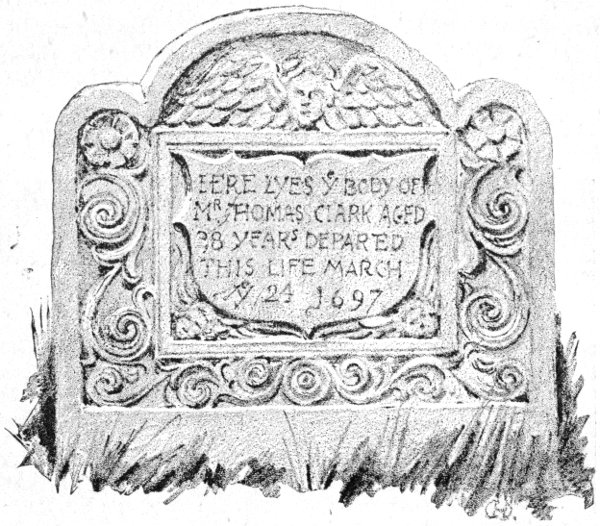 HERE LYES Yᵉ BODY OF
Mʳ THOMAS CLARK AGED
98 YEARˢ DEPARTED
THIS LIFE MARCH
Yᵉ 24 1697